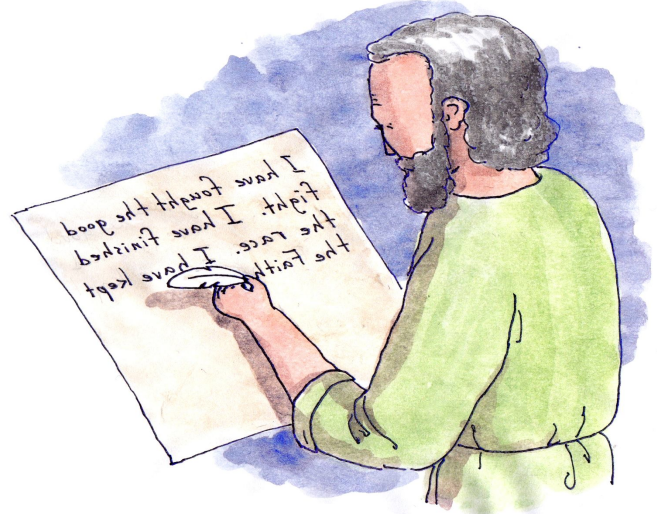 I have fought the good
fight. I have finished
the race. I have kept
the Faith.